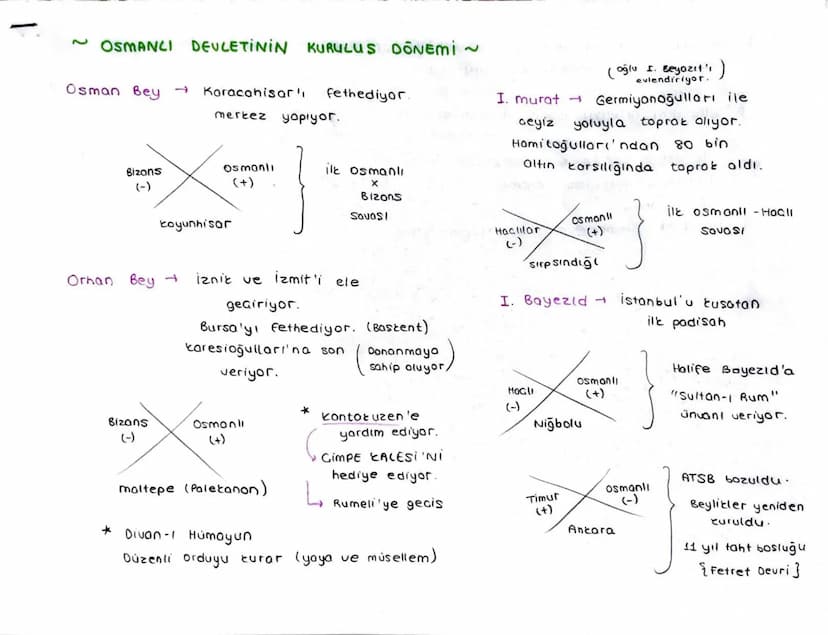 ~ OSMANLI DEVLETİNİN KURULUS DÖNEMİ ~
Osman Bey → Karacahisar'ı fethediyor.
merkez yapıyor.
Bizans
(-)
Osmanlı
(+)
Koyunhisar
ilk Osmanlı
x
Bizans
savası
Orhan Bey → iznik ve İzmit'i ele
geciriyor.
Bursa'yı fethediyor. (Baskent)
Karesioğulları'na son
veriyor.
(Donanmaya
sahip oluyor)
Bizans
(-)
Osmanlı
(+)
maltepe (Palekanon)
* Kantakuzen'e
yardım ediyor.
CİMPE KALESİ'Nİ
hediye ediyor.
Rumeli'ye gecis
* Divan-ı Hümayun
Düzenli orduyu kurar (yaya ve müsellem)
(oğlu I. Beyazıt'ı
evlendiriyor.)
I. murat → Germiyanoğulları ile
ceyiz yoluyla toprak alıyor.
Hamitoğulları'ndan 80 bin
altın karsılığında toprak aldı.
Haclılar
(-)
Osmanlı
(+)
sırpsındığı
ilk Osmanlı - Haclı
savası
I. Bayezid → İstanbul'u kusatan
ilk padisah
Haclı
(-)
Osmanlı
(+)
Niğbolu
Halife Bayezid'a
"Sultan-ı Rum"
ünvanı veriyor.
Timur
(+)
Osmanlı
(-)
Ankara
ATSB bozuldu.
Beylikler yeniden
kuruldu.
11 yıl taht bosluğu
{Fetret Devri}